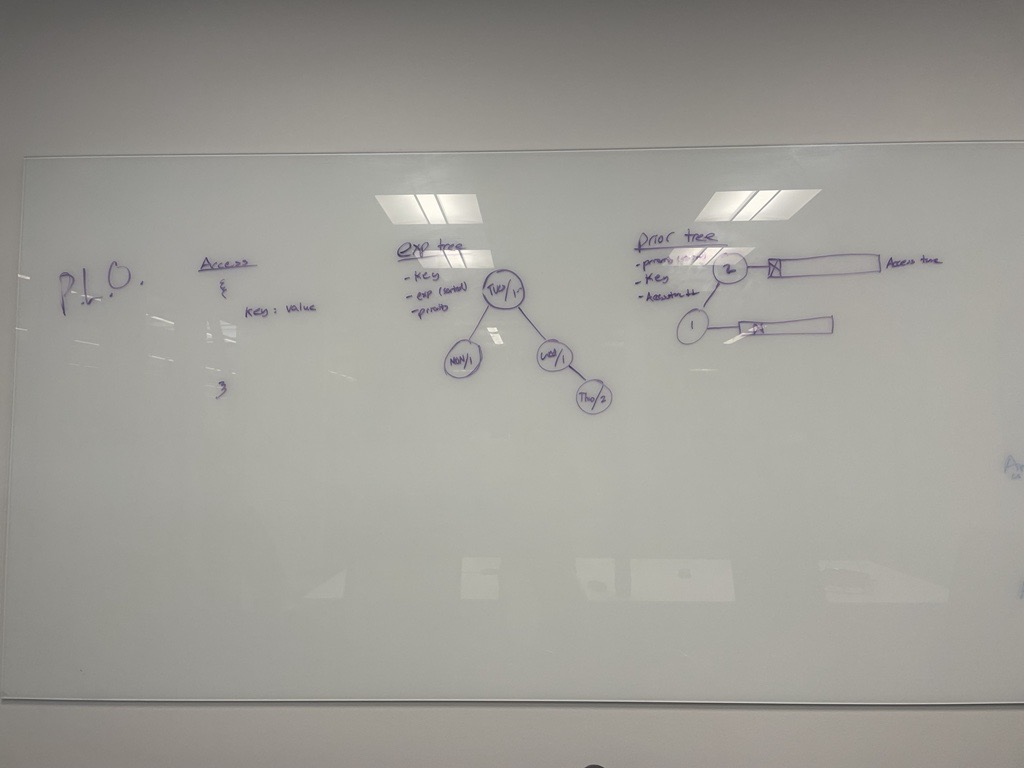 P.L.O.
Access
{
key : value
}
exp tree
- key
- exp (sorted)
- priority
Tue/1
Mon/1
Wed/1
Thu/2
prior tree
- key
2
1
Access time